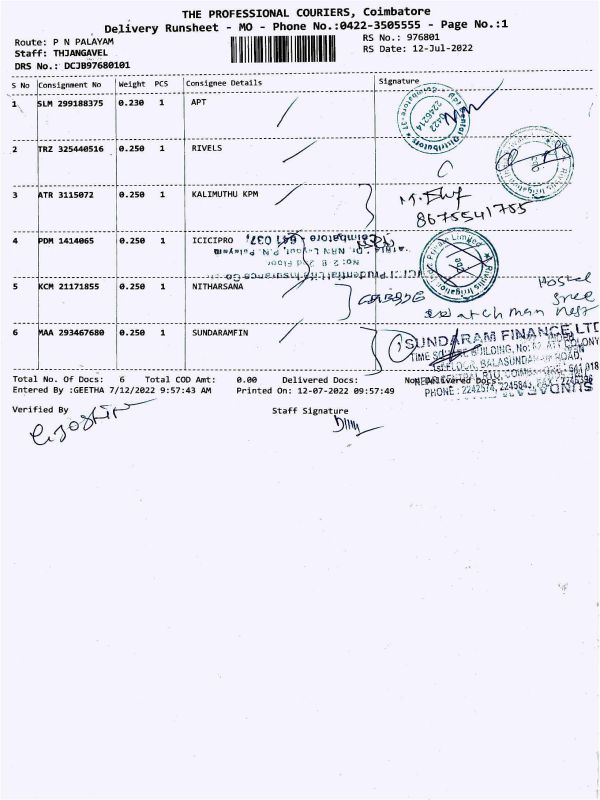 THE PROFESSIONAL COURIERS, Coimbatore
Delivery Runsheet - MO - Phone No.:0422-3505555 - Page No.:1
Route: P N PALAYAM
Staff: THJANGAVEL
DRS No.: DCJB97680101
RS No.: 976801
RS Date: 12-Jul-2022
S No Consignment No Weight PCS Consignee Details Signature
1 SLM 299188375 0.230 1 APT
2246214
2 TRZ 325440516 0.250 1 RIVELS
3 ATR 3115072 0.250 1 KALIMUTHU KPM
8675541755
4 PDM 1414065 0.250 1 ICICIPRO
641 037
Coimbatore
Dr. NRN Layout, P.N. Palayam
No: 2 B 2nd Floor
ICICI Prudential Life Insurance Co
Private Limited
Rivins Irrigation
5 KCM 21171855 0.250 1 NITHARSANA
Hostel
Sree
watchman Nest
6 MAA 293467680 0.250 1 SUNDARAMFIN
SUNDARAM FINANCE LTD
TIME SQUARE BUILDING, No: ATT COLONY
1st FLOOR, BALASUNDARAM ROAD,
PHONE : 2242574,
Total No. Of Docs: 6 Total COD Amt: 0.00 Delivered Docs: Non Delivered Docs:
Entered By :GEETHA 7/12/2022 9:57:43 AM Printed On: 12-07-2022 09:57:49
Verified By
Staff Signature